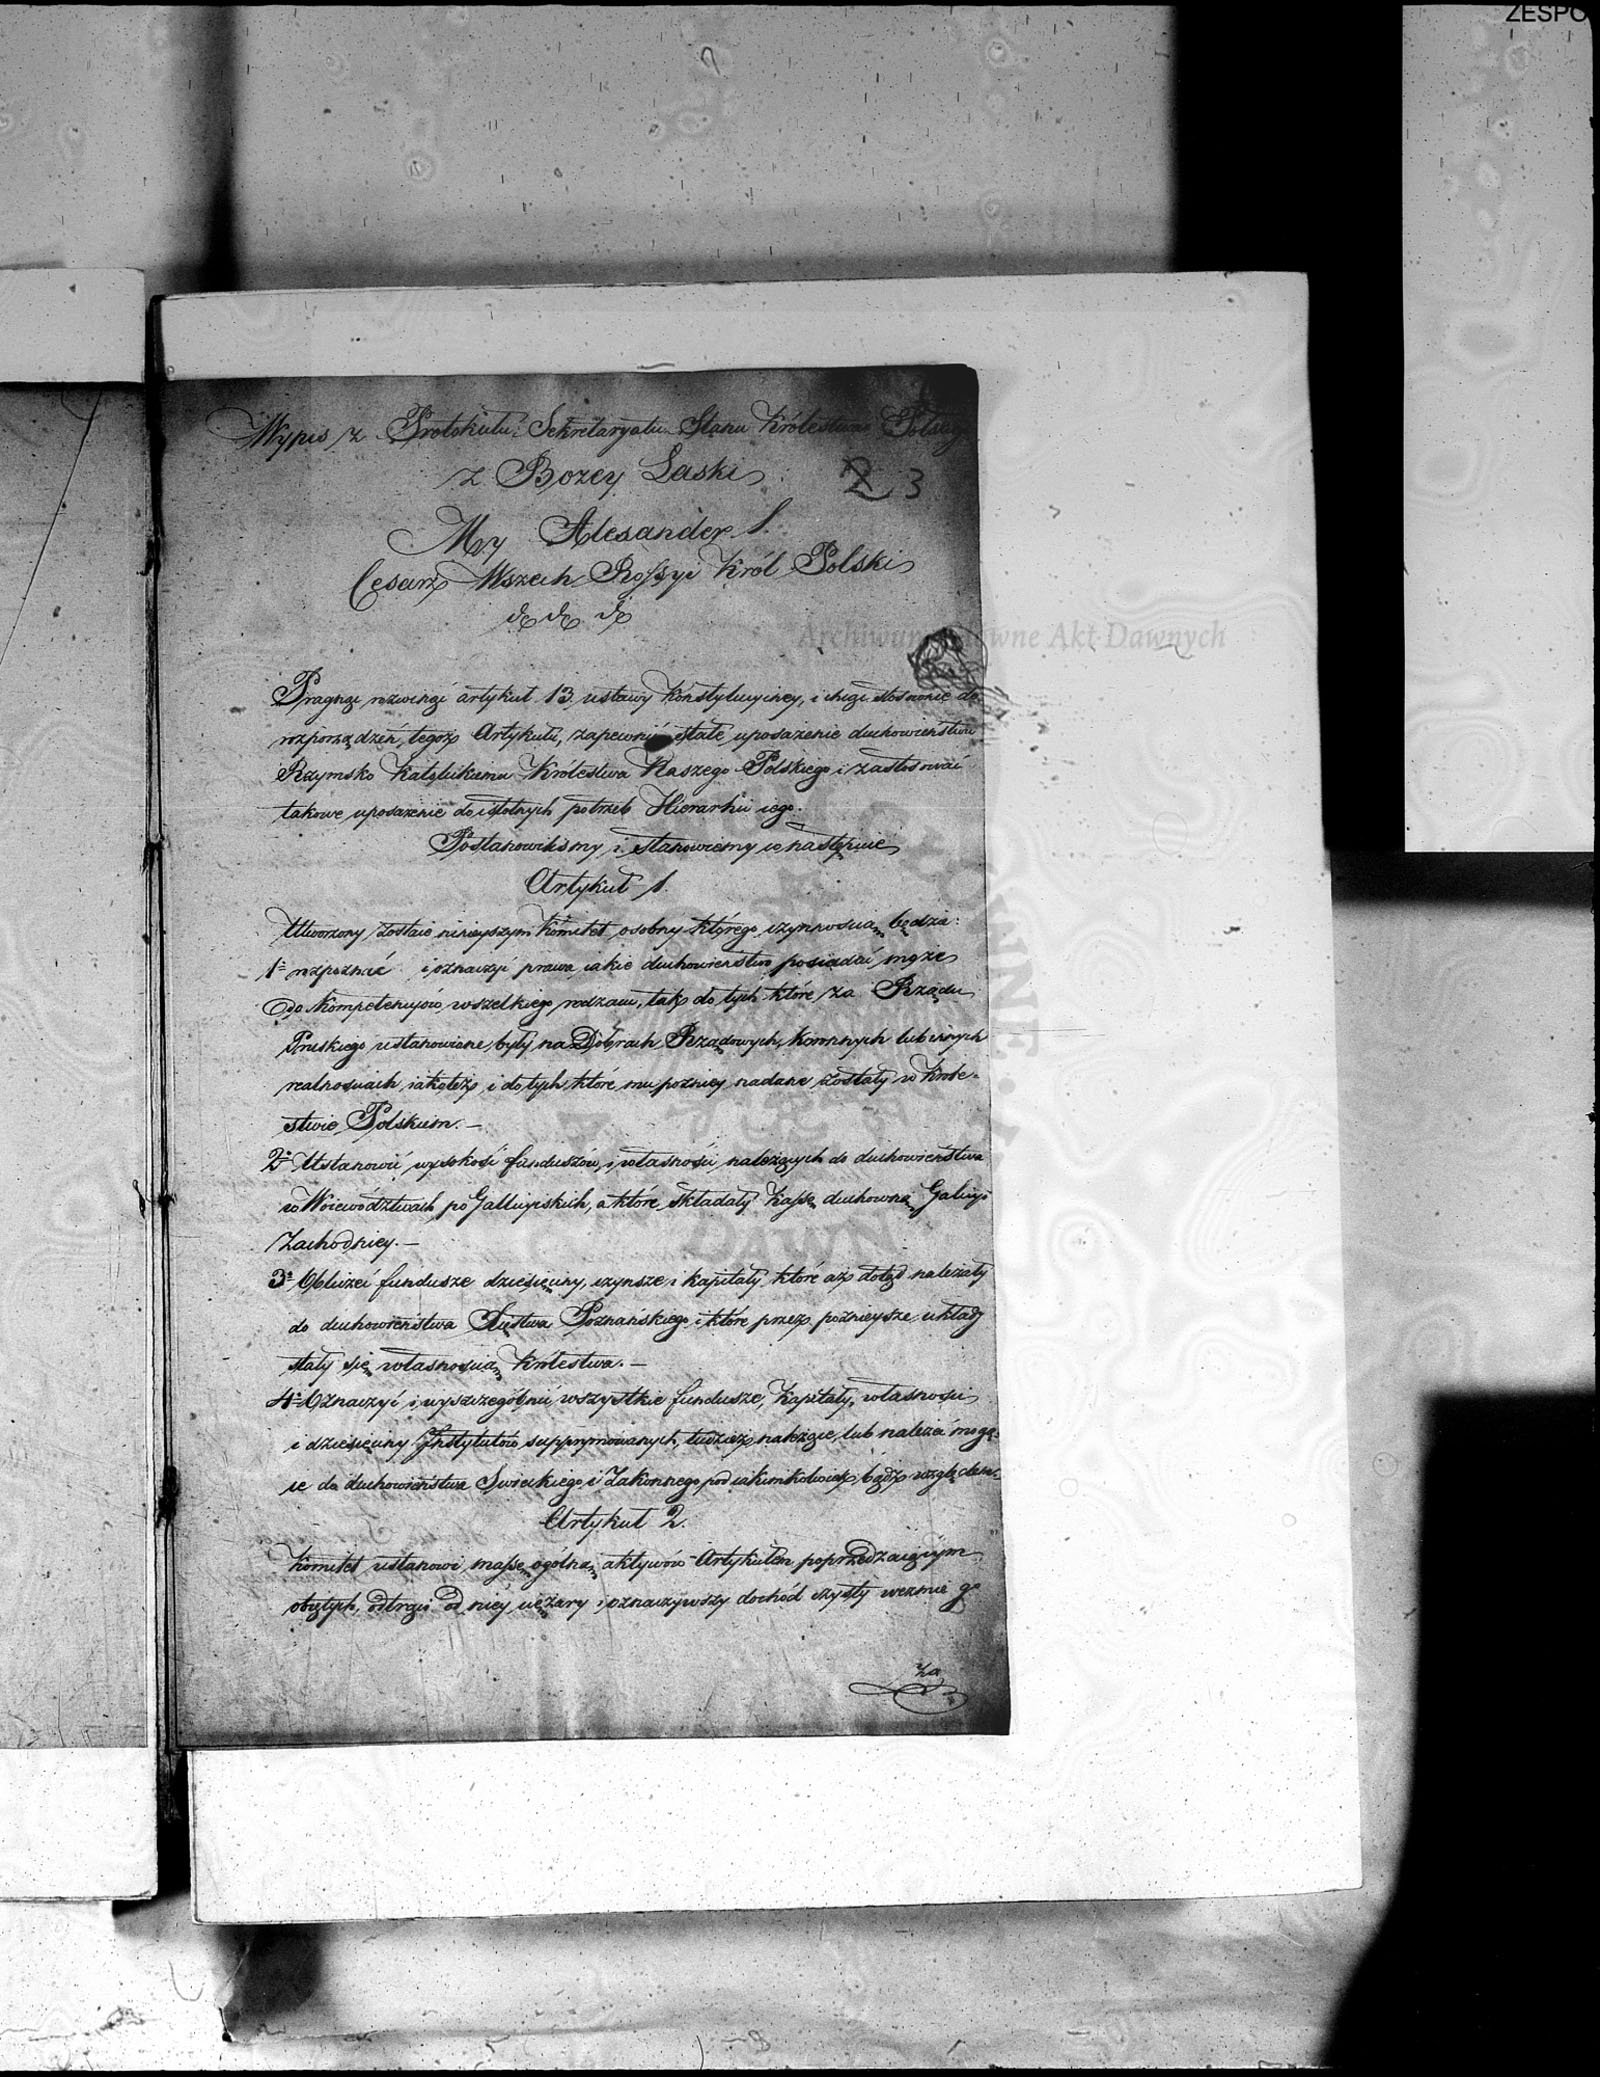 ZESPO
Wypis z Protokułu Sekretaryatu Stanu Królestwa Polskiego
z Bozey Łaski
2 3
My Alexander I.
Cesarz Wszech Rossyi Król Polski
&c &c &c
Archiwum Główne Akt Dawnych
Pragnąc rozwinąć artykuł 13 ustawy Konstytucyiney, i chcąc stosownie do
rozporządzeń tegoż Artykułu, zapewnić stałe uposażenie duchowieństwu
Rzymsko Katolickiemu Królestwa Naszego Polskiego i zastosować
takowe uposażenie do istotnych potrzeb Hierarhii iego.
Postanowiliśmy i stanowiemy co następuie
Artykuł 1.
Utworzony zostaie ninieyszym Komitet osobny którego czynnościa będzie:
1º rozpoznać i oznaczyć prawa iakie duchowieństwo posiadać może
do Kompetencyów wszelkiego rodzaiu, tak do tych które za Rządu
Pruskiego ustanowione były na Dobrach Rządowych, Koronnych lub innych
realnościach iakoteż i do tych które mu pozniey nadane zostały w Króle-
stwie Polskiem.—
2º Ustanowić wysokość funduszów i własności należących do duchowieństwa
w Woiewództwach po Gallicyiskich, a które składały Kassę duchowną Galicyi
Zachodniey.—
3º Obliczyć fundusze dziesięciny, czynsze i kapitały które aż dotąd należały
do duchowieństwa Xięstwa Poznańskiego i które przez poźnieysze układy
stały się własnością Królestwa.—
4º Oznaczyć i wyszczególnić wszystkie fundusze, Kapitały, własności
i dziesięciny Instytutów supprymowanych, tudzież należące lub należeć mogą-
ce do duchowieństwa Swieckiego i Zakonnego pod iakimkolwiek bądź względem.
Artykuł 2.
Komitet ustanowi massę ogólną aktywów Artykułem poprzedzaiącym
obiętych, odtrąci od niey ciężary i oznaczywszy dochód czysty weźmie go
za